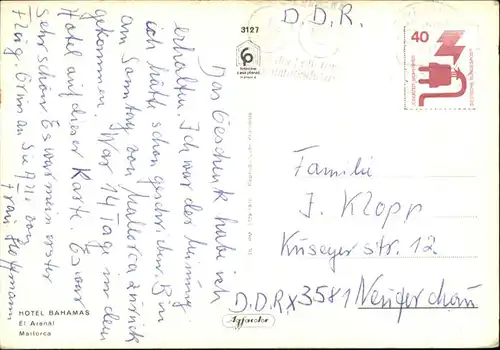 3127
D.D.R.
40
Das Geschenk habe ich
erhalten. Ich war der Meinung
ich hätte schon geschrieben. Bin
am Sonntag von Mallorca zurück
gekommen. War 14 Tage in dem
Hotel auf dieser Karte. Es war
sehr schön Es war mein erster
Flug. Grüße an Sie Alle von
Frau Hoffmann
Familie
J. Klopp
Küseyer str. 12
D.D.R X3581 Neuferchau
HOTEL BAHAMAS
El Arenal
Mallorca